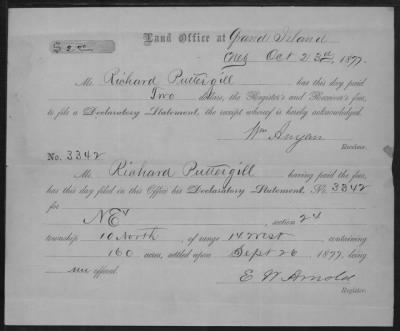 $ 2.00
Land Office at Grand Island
Neb Oct 23rd, 1877.
Mr. Richard Puttergill has this day paid
Two dollars, the Register's and Receiver's fees,
to file a Declaratory Statement, the receipt whereof is hereby acknowledged.
Wm Anyan
Receiver.
No. 3342
Mr. Richard Puttergill having paid the fees,
has this day filed in this Office his Declaratory Statement, No. 3342
for
NE¼, section 24
township 10 North, of range 14 West, containing
160 acres, settled upon Sept 26 1877, being
offered.
E W Arnold
Register.